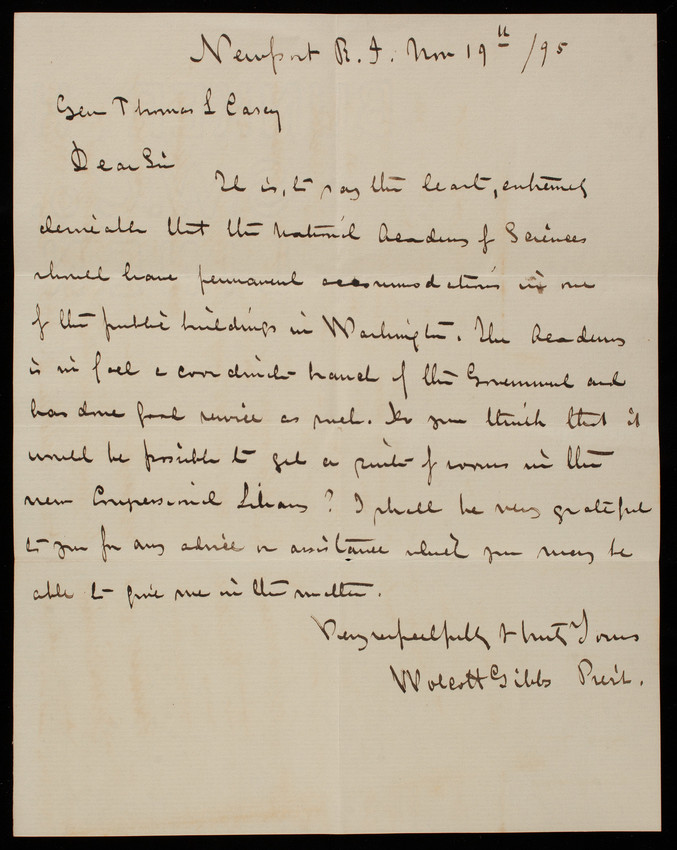 Newport R.I. Nov 19th /95
Gen Thomas L Casey
Dear Sir
It is, to say the least, extremely
desirable that the National Academy of Sciences
should have permanent accommodations in one
of the public buildings in Washington. The Academy
is in fact a coordinate branch of the Government and
has done good service as such. Do you think that it
would be possible to get a suite of rooms in the
new Congressional Library? I shall be very grateful
to you for any advice or assistance which you may be
able to give me in the matter.
Very respectfully & truly Yours
Wolcott Gibbs Prest.